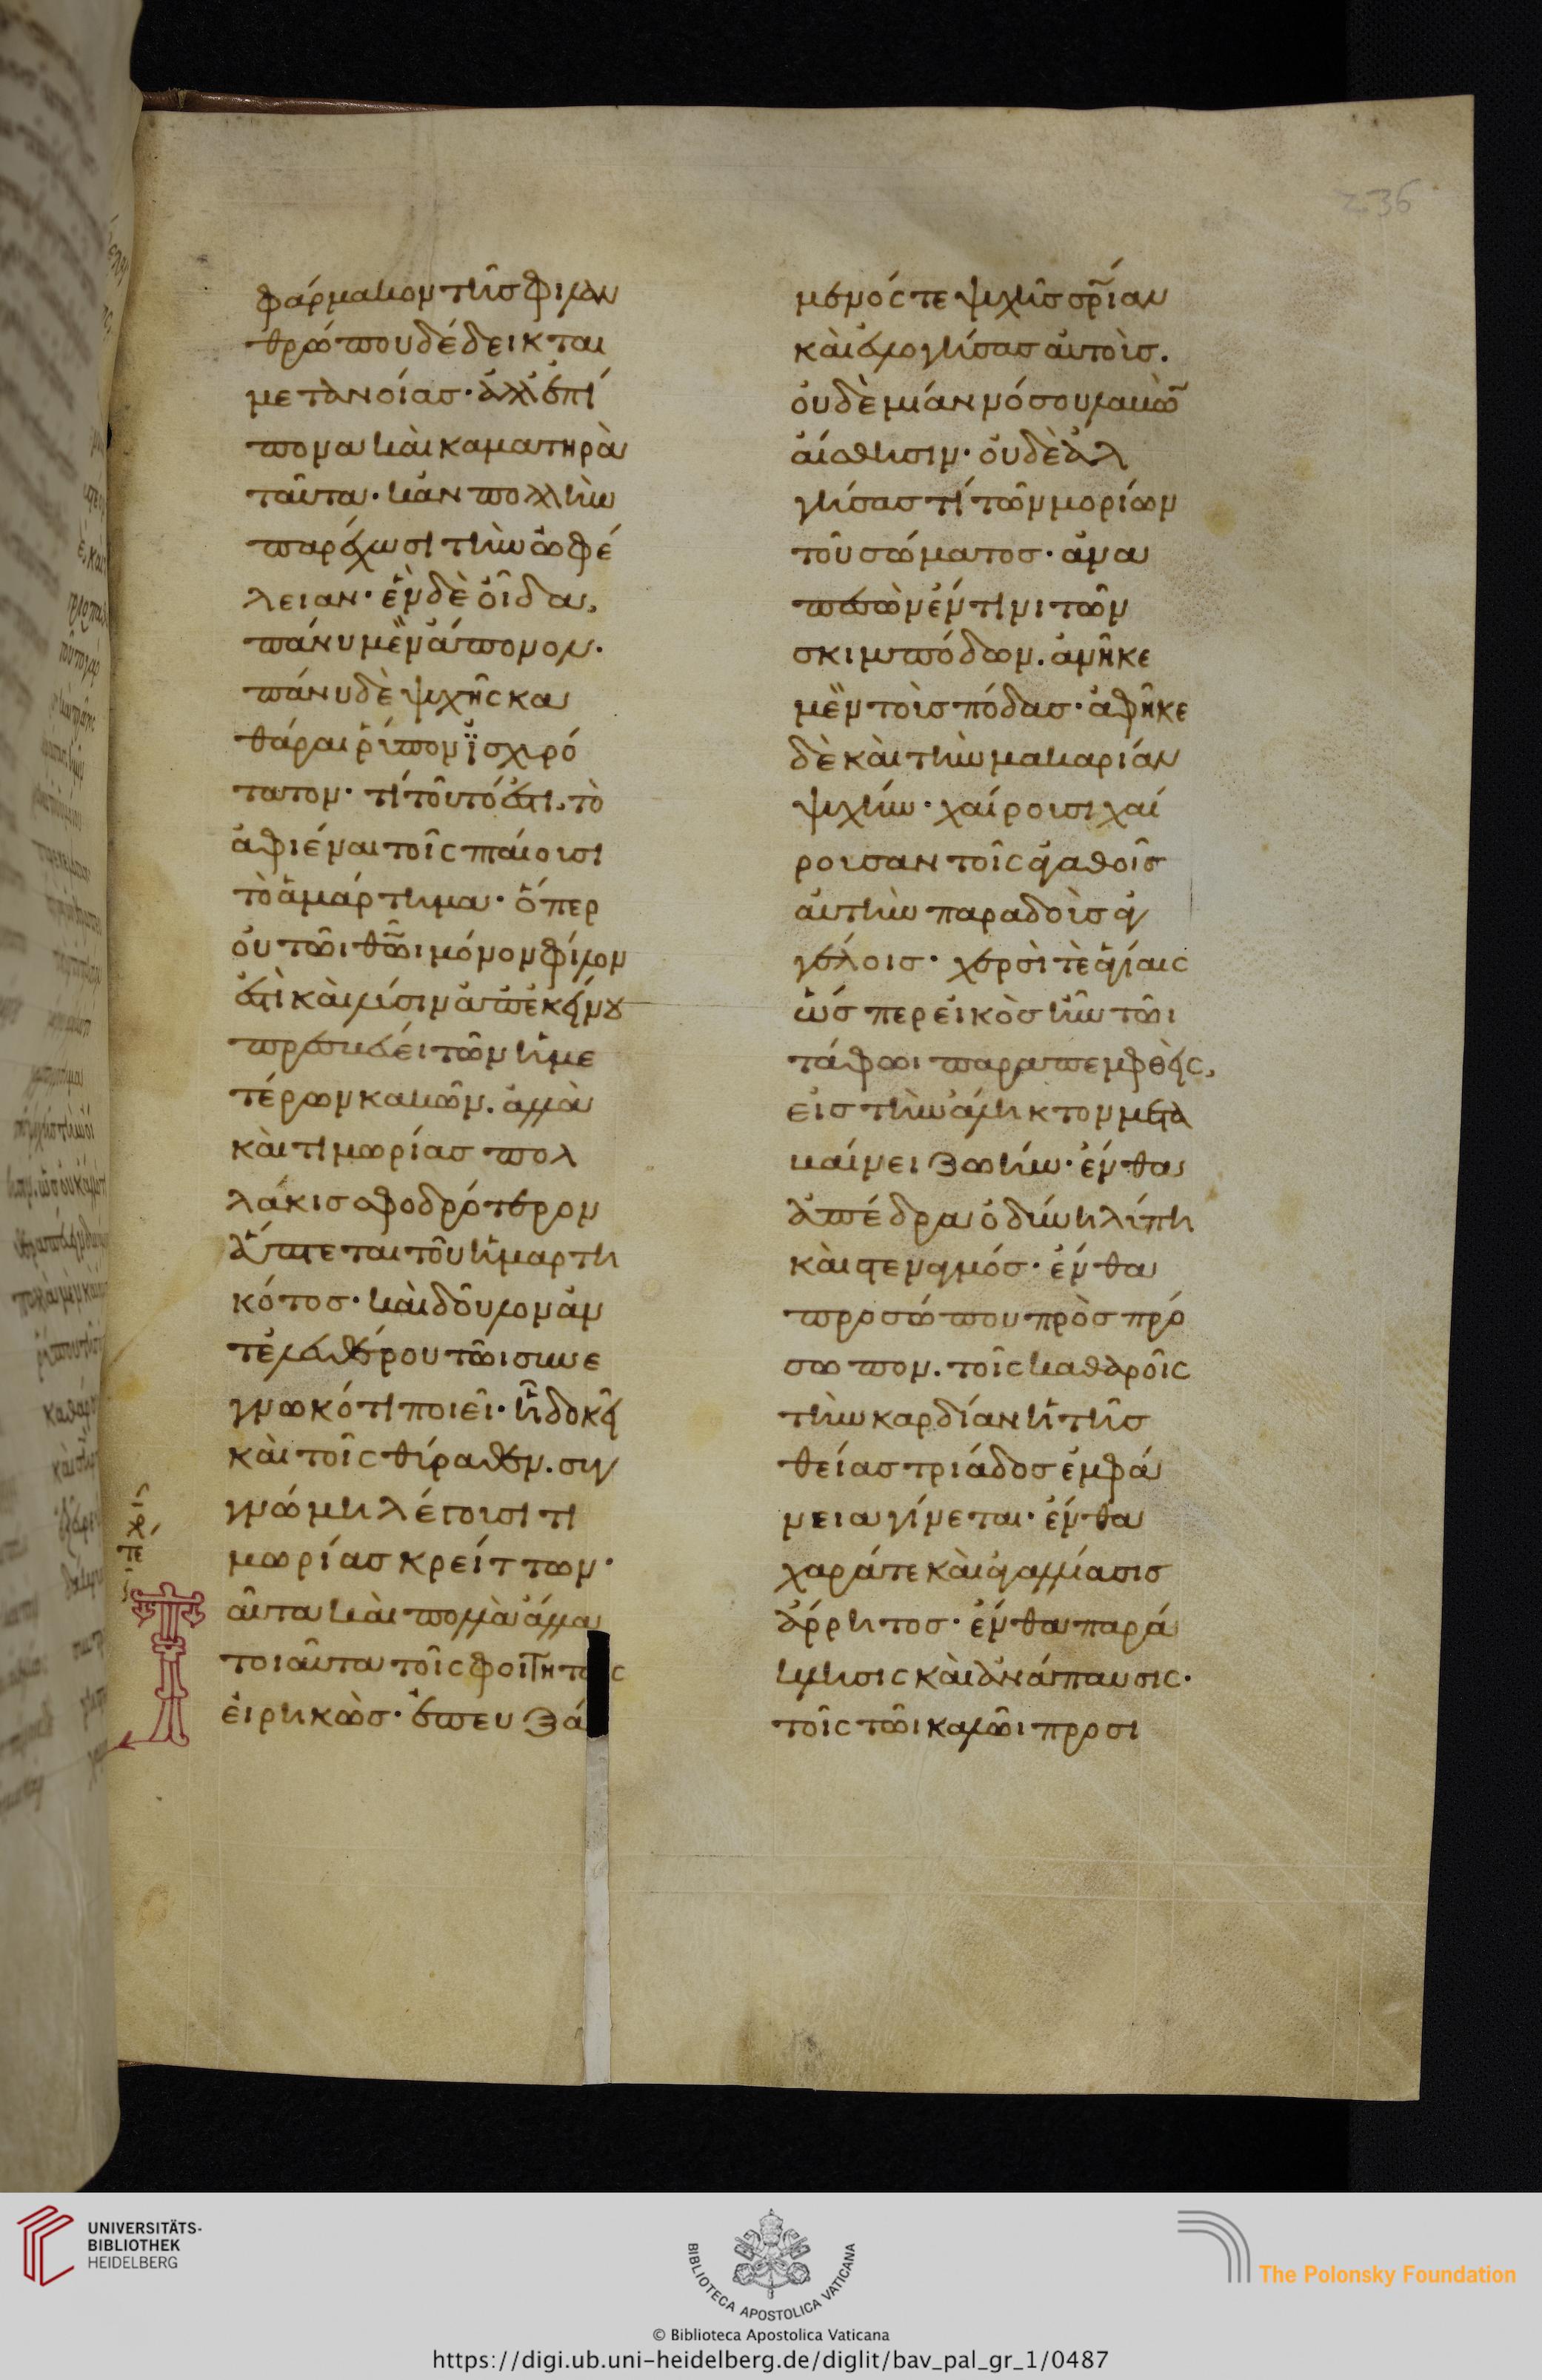 φάρμακον τῆς φιλαν
θρώπου δέδεικται
μετανοίας· ἀλλ' ἐπί
πονα καὶ καματηρὰ
ταῦτα· κἂν πολλὴν
παρέχωσι τὴν ὠφέ
λειαν· ἓν δὲ οἶδα,
πάνυ μὲν ἄπονον·
πάνυ δὲ ψυχῆς κα
θάραι ῥύπον ἰσχυρό
τατον· τί τοῦτό ἐστι, τὸ
ἀφιέναι τοῖς πταίουσι
τὸ ἁμάρτημα· ὅπερ
οὐ τῶι θῶι μόνον φίλον
ἐστὶ καὶ λύσιν ἀπ' ἐκείνου
προσκαλεῖ τῶν ἡμε
τέρων κακῶν. ἀλλὰ
καὶ τιμωρίας πολ
λάκις σφοδρότερον
ἅπτεται τοῦ ἡμαρτη
κότος· καὶ δοῦλον ἀν
τ' ἐλευθέρου τῶι συνε
γνωκότι ποιεῖ· ἢ δοκεῖ
καὶ τοῖς θύραθεν. συγ
γνώμη λέγουσι τι
μωρίας κρείττων·
αῦτα καὶ πολλὰ ἄλλα
τοιαῦτα τοῖς φοιτητ ς
εἰρηκὼς· ἐπευξά
μενός τε ψυχῆς σρίαν
καὶ εὐλογήσας αὐτοὺς.
οὐδὲ μίαν νόσου λαβὼν
αἴσθησιν· οὐδὲ ἀλ
γήσας τί τῶν μορίων
τοῦ σώματος· ἀνα
πεσὼν ἔν τινι τῶν
σκιμπόδων. ἀνῆκε
μὲν τοὺς πόδας· ἀφῆκε
δὲ καὶ τὴν μακαρίαν
ψυχήν· χαίρουσι χαί
ρουσαν τοῖς ἀγαθοῖς
αὐτὴν παραδοὺς ἀγ
γέλοις· χερσί τε ἁγίαις
ὥσπερ εἰκὸς ἦν τῶι
τάφωι παραπεμφθεὶς,
εἰς τὴν ἄληκτον μετα
βαίνει ζωήν· ἔνθα
ἀπέδρα ὀδύνη λύπη
καὶ στεναγμός· ἔνθα
προσώπου πρὸς πρό
σωπον. τοῖς καθαροῖς
τὴν καρδίαν ἡ τῆς
θείας τριάδος ἐμφά
νεια γίνεται· ἔνθα
χαρά τε καὶ ἀγαλλίασις
ἄρρητος· ἔνθα παρά
κλησις καὶ ἀνάπαυσις·
τοῖς τῶι καλῶι προσι
236
UNIVERSITÄTS-
BIBLIOTHEK
HEIDELBERG
BIBLIOTECA APOSTOLICA VATICANA
The Polonsky Foundation
© Biblioteca Apostolica Vaticana
https://digi.ub.uni-heidelberg.de/diglit/bav_pal_gr_1/0487